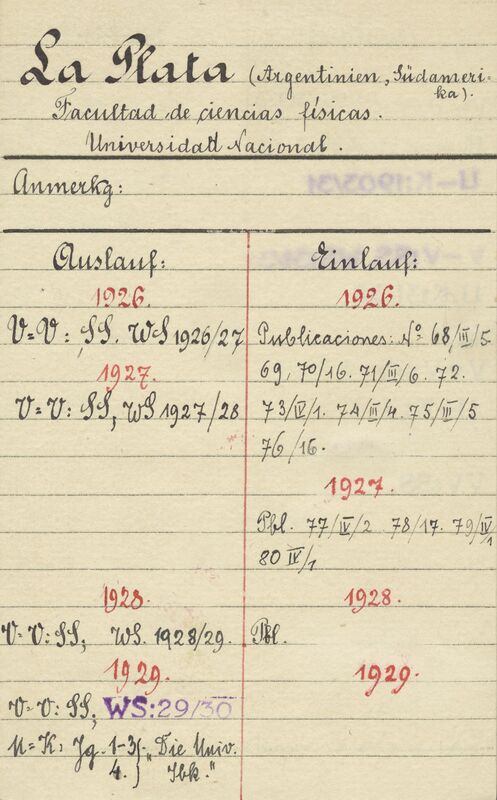 La Plata (Argentinien, Südameri-
ka).
Facultad de ciencias físicas.
Universidad Nacional.
Anmerkg:
Auslauf:
1926.
V=V: SS. WS 1926/27
1927.
V=V: SS, WS 1927/28
1928.
V=V: SS, WS. 1928/29.
1929.
V=V: SS, WS:29/30
U=K: Jg. 1-3 } "Die Univ.
4. Ibk."
Einlauf:
1926.
Publicaciones: Nº 68/III/5
69, 70/16. 71/III/6. 72.
73/IV/1. 74/III/4. 75/III/5
76/16.
1927.
Pbl. 77/IV/2 78/17. 79/IV/1
80 IV/1
1928.
Pbl.
1929.